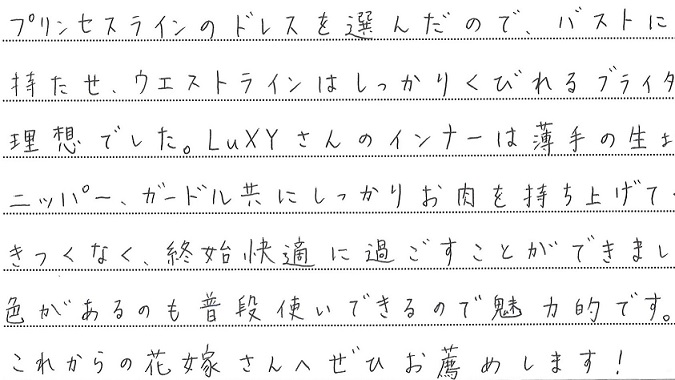 プリンセスラインのドレスを選んだので、バストに
持たせ、ウエストラインはしっかりくびれるブライタ
理想でした。LuXYさんのインナーは薄手の生
ニッパー、ガードル共にしっかりお肉を持ち上げて
きつくなく、終始快適に過ごすことができまし
色があるのも普段使いできるので魅力的です。
これからの花嫁さんへぜひお薦めします!